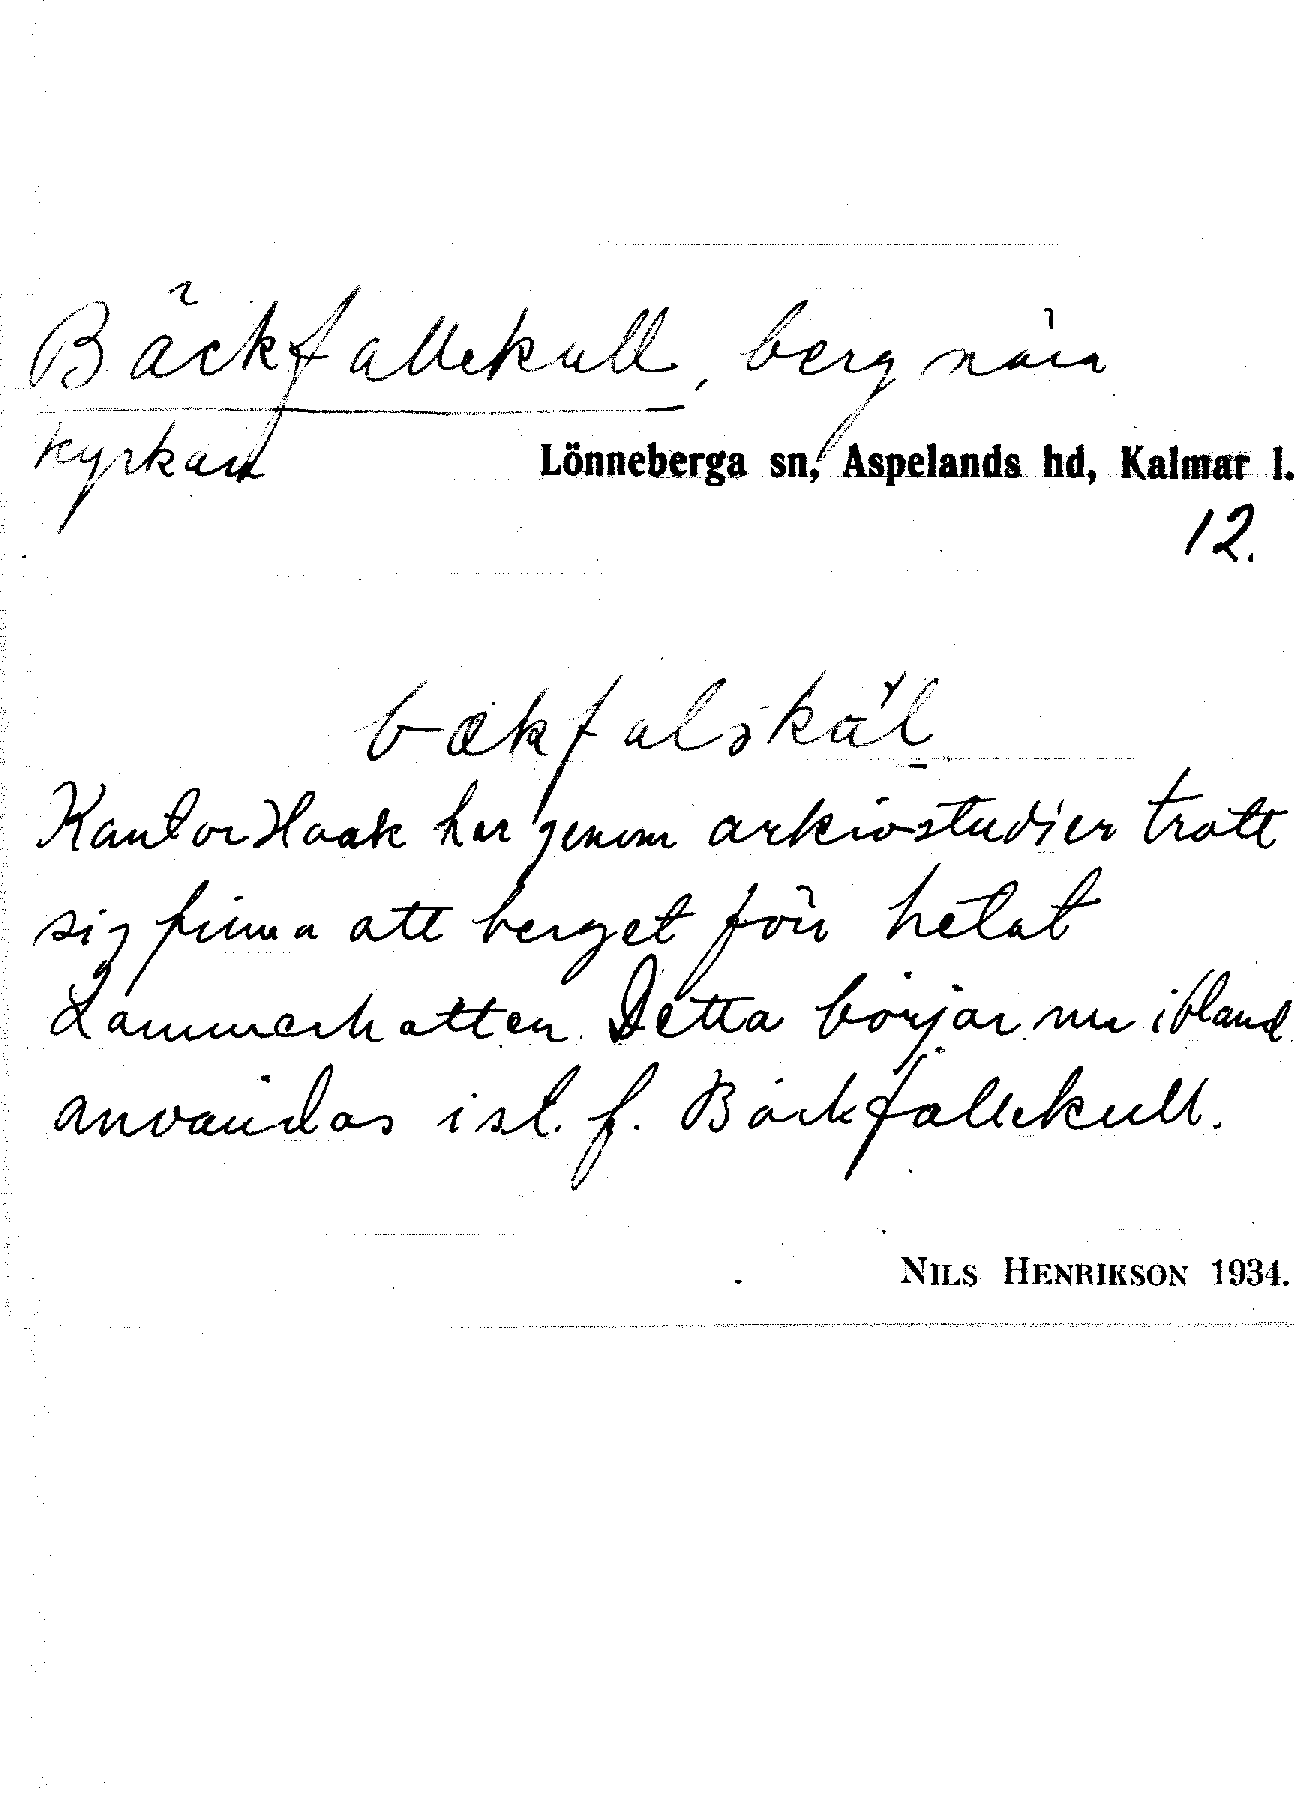 Bäckfallekull, berg nära
kyrkan Lönneberga sn, Aspelands hd, Kalmar l.
12.
bækfalskál
Kantor Haak har genom arkivstudier trott
sig finna att berget förr hetat
Lammerhatten. Detta börjar nu ibland
användas i st. f. Bäckfallekull.
NILS HENRIKSON 1934.